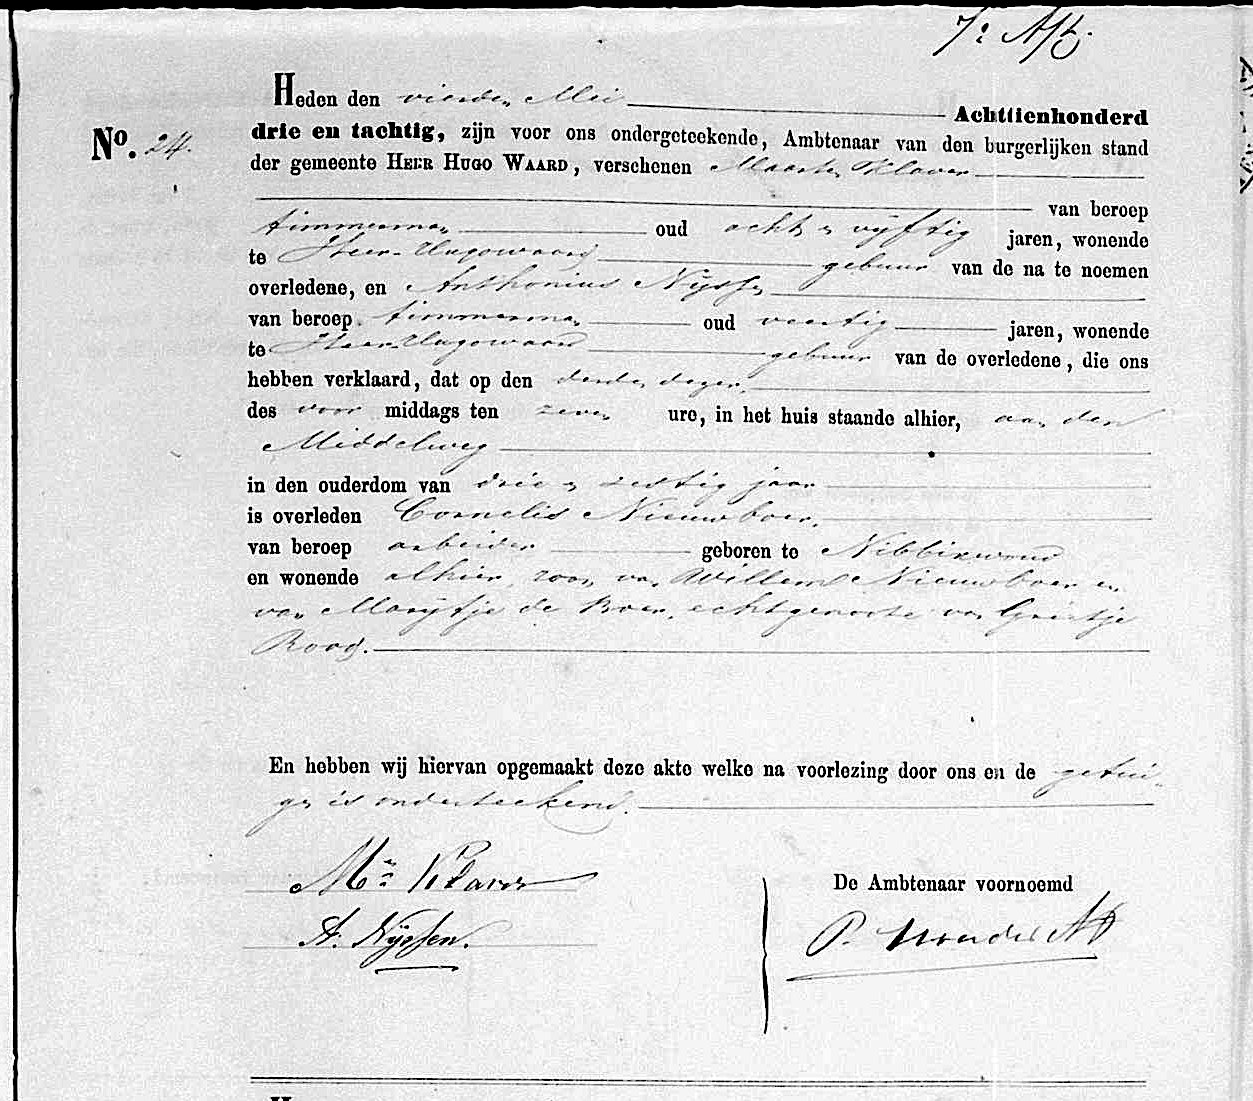 Heden den vierden Mei Achttienhonderd
No. 24.
drie en tachtig, zijn voor ons ondergeteekende, Ambtenaar van den burgerlijken stand
der gemeente HEER HUGO WAARD, verschenen Maarten Klaver
van beroep
timmerman oud acht en vijftig jaren, wonende
te Heer-Hugowaard gebuur van de na te noemen
overledene, en Anthonius Nijssen
van beroep timmerman oud veertig jaren, wonende
te Heer-Hugowaard gebuur van de overledene, die ons
hebben verklaard, dat op den derden dezer,
des voor middags ten zeven ure, in het huis staande alhier, aan den
Middelweg
in den ouderdom van drie en zestig jaar
is overleden Cornelis Nieuwboer,
van beroep arbeider geboren te Nibbixwoud
en wonende alhier, zoon van Willem Nieuwboer en
van Marijtje de Boer, echtgenoote van Grietje
Rood.
En hebben wij hiervan opgemaakt deze akte welke na voorlezing door ons en de getui-
gen is onderteekend.
Mn Klaver
De Ambtenaar voornoemd
A. Nijssen.
P.